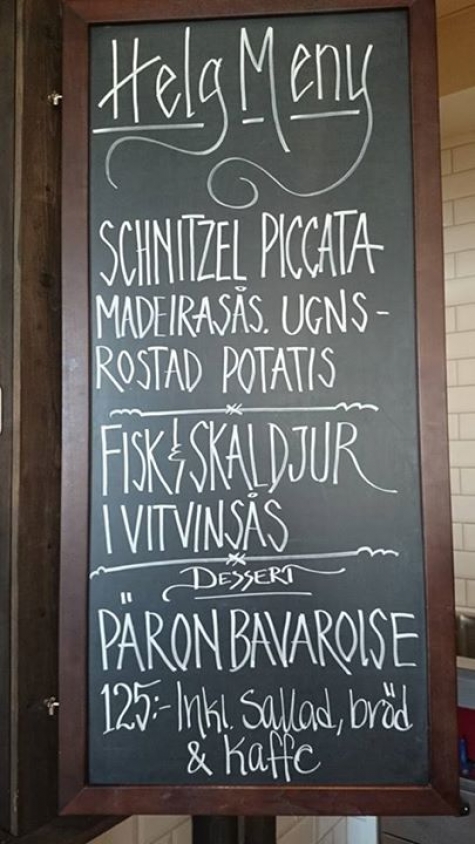 Helg Meny
SCHNITZEL PICCATA
MADEIRASÅS. UGNS-
ROSTAD POTATIS
FISK & SKALDJUR
I VITVINSÅS
DESSERT
PÄRON BAVAROISE
125:- Inkl. Sallad, bröd
& Kaffe